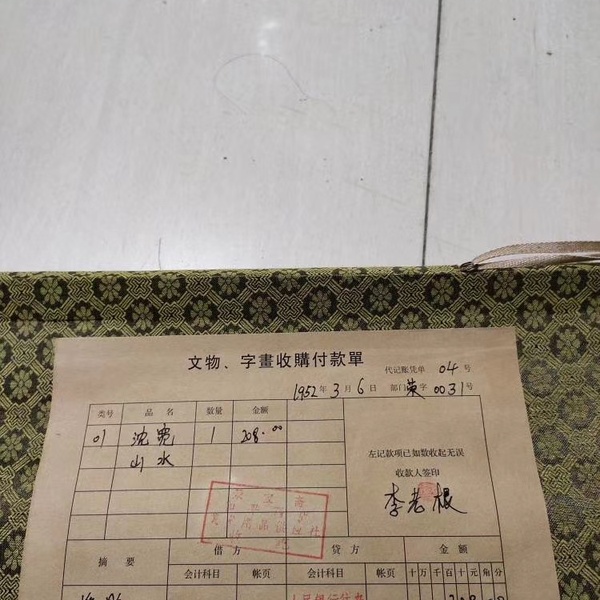 文物、字畫收購付款單
代记账凭单 04 号
1952年3月6日 部门荣字0031号
类号 品名 数量 金额
01 沈宽 1 208.00
山水
左记款项已如数收起无误
收款人签印
李老根
摘要 借方 贷方 金额
会计科目 帐页 会计科目 帐页 十万千百十元角分